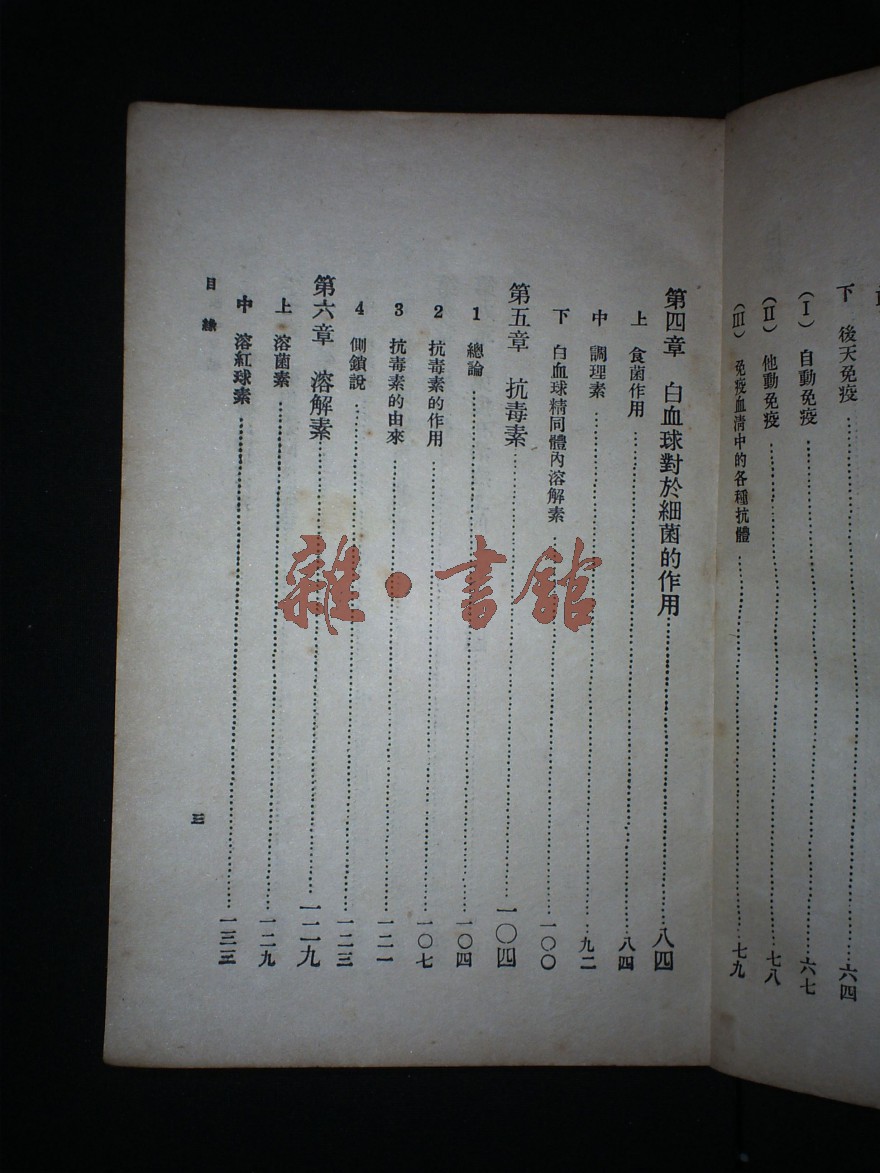 下 後天免疫……六四
(I) 自動免疫……六七
(II) 他動免疫……七八
(III) 免疫血清中的各種抗體……七九
第四章 白血球對於細菌的作用……八四
上 食菌作用……八四
中 調理素……九二
下 白血球精同體內溶解素……一〇〇
第五章 抗毒素……一〇四
1 總論……一〇四
2 抗毒素的作用……一〇七
3 抗毒素的由來……一二一
4 側鎖說……一二三
第六章 溶解素……一二九
上 溶菌素……一二九
中 溶紅球素……一三三
目錄
三
雜·書館